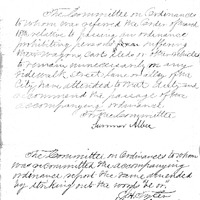 The Committee on Ordinances
to whom was referred the Order of
relative to passing an ordinance
prohibiting persons from suffering
any wagon, cart, sled or other vehicles
to remain unnecessarily on any
sidewalk, street, lane or alley of the
City have attended to that duty and
recommend the passage of the
accompanying ordinance.
For the Committee
The Committee on Ordinances to whom
was recommitted the accompanying
ordinance, report the same amended
by striking out the words